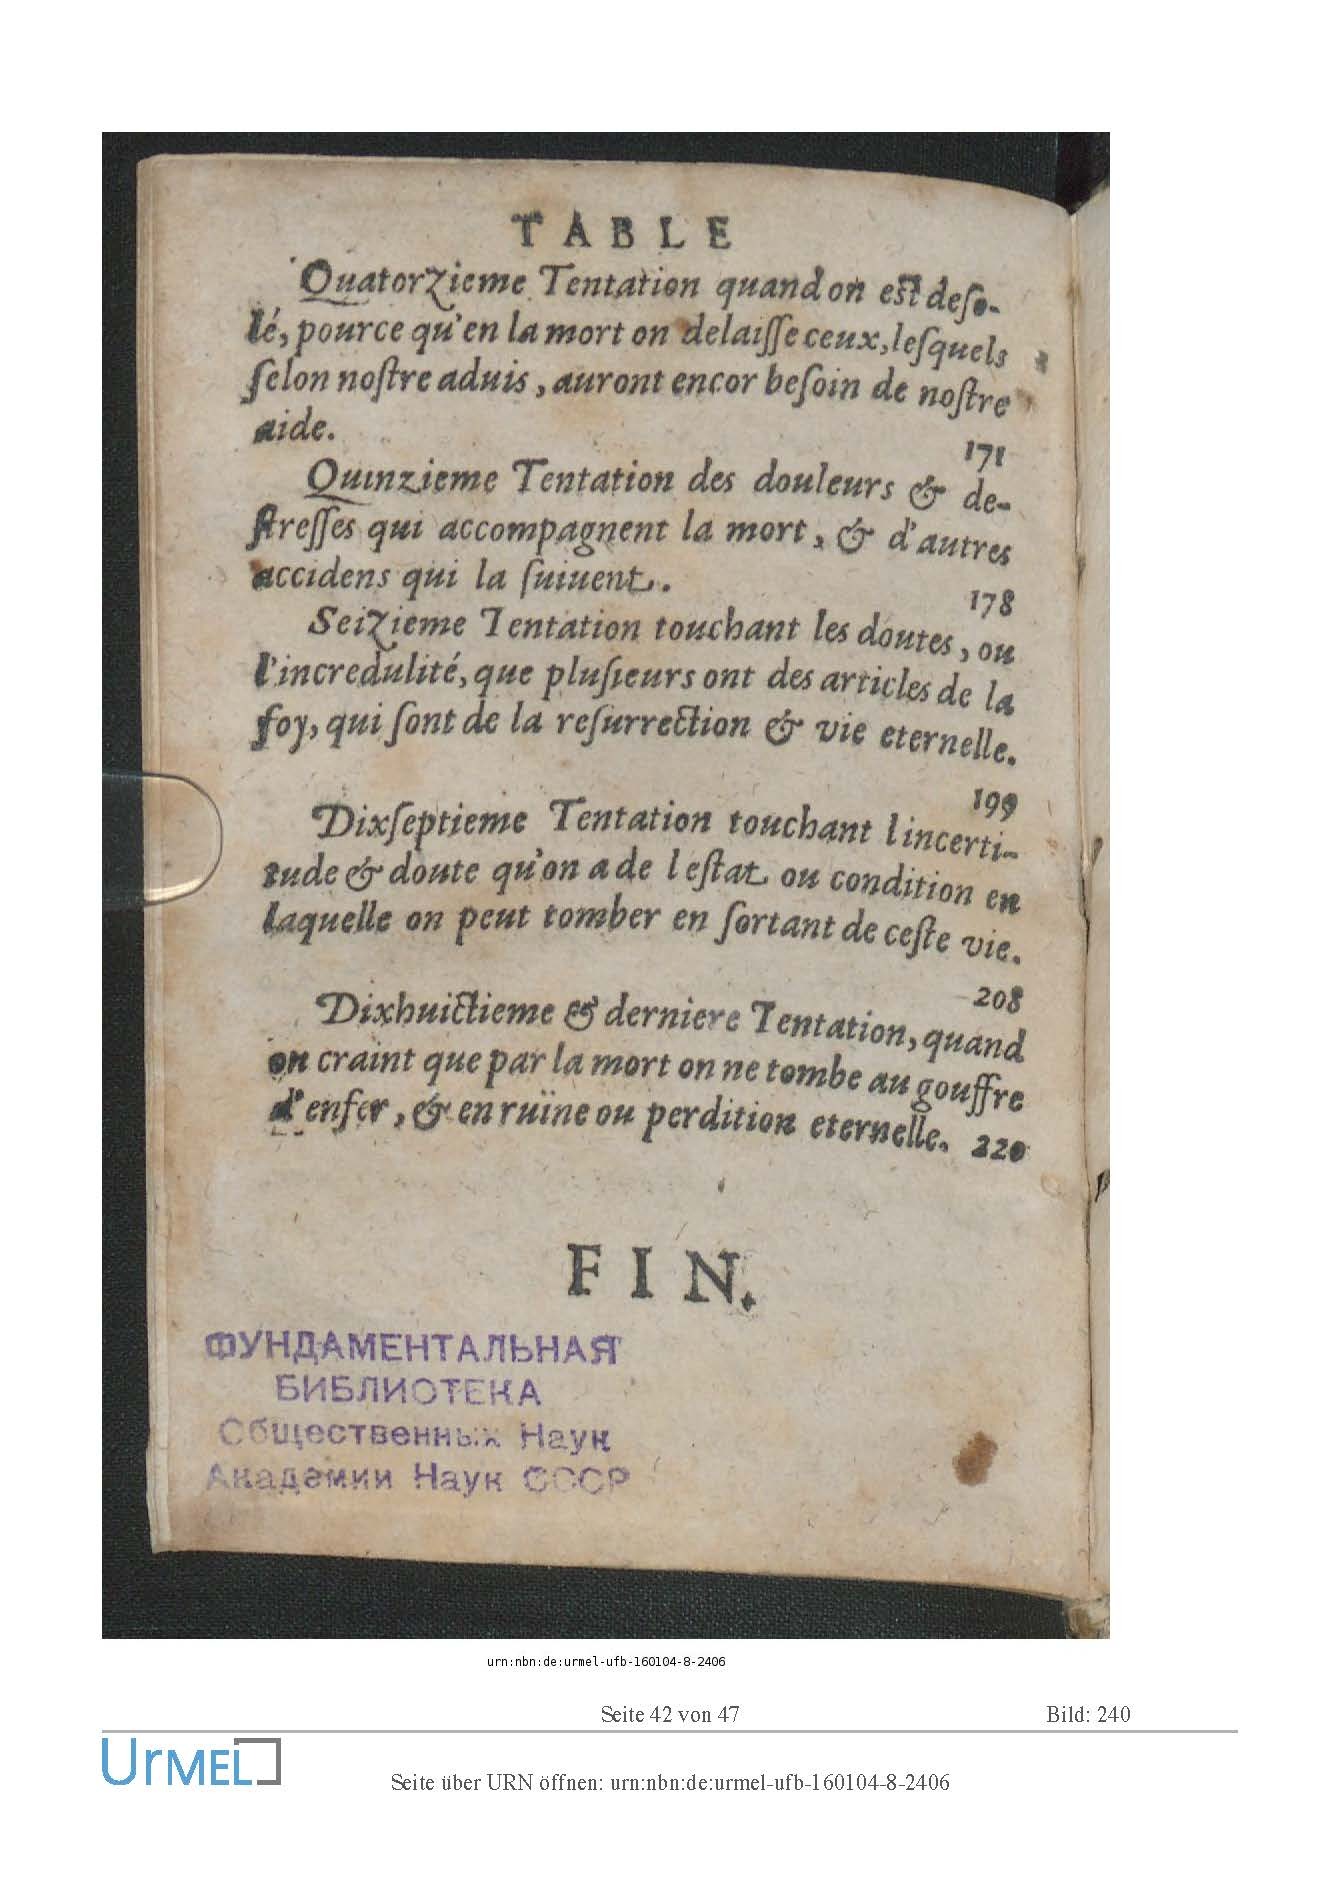 TABLE
Quatorzieme Tentation quand on est deso-
lé, pource qu'en la mort on delaisse ceux, lesquels
selon nostre aduis, auront encor besoin de nostre
aide. 171
Quinzieme Tentation des douleurs & de-
stresses qui accompagnent la mort, & d'autres
accidens qui la suiuent. 178
Seizieme Tentation touchant les doutes, ou
l'incredulité, que plusieurs ont des articles de la
foy, qui sont de la resurrection & vie eternelle.
199
Dixseptieme Tentation touchant lincerti-
tude & doute qu'on a de lestat ou condition en
laquelle on peut tomber en sortant de ceste vie.
208
Dixhuictieme & derniere Tentation, quand
on craint que par la mort on ne tombe au gouffre
d'enfer, & en ruïne ou perdition eternelle. 220
FIN.
ФУНДАМЕНТАЛЬНАЯ
БИБЛИОТЕКА
Общественных Наук
Академии Наук СССР
urn:nbn:de:urmel-ufb-160104-8-2406
Seite 42 von 47 Bild: 240
UrMEL
Seite über URN öffnen: urn:nbn:de:urmel-ufb-160104-8-2406